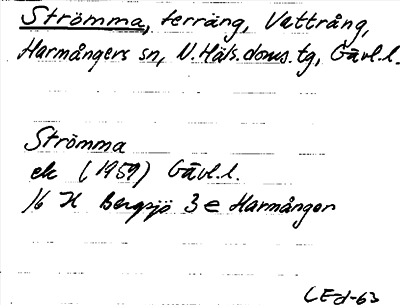 Strömma, terräng, Vattrång,
Harmångers sn, N. Häls. doms. tg, Gävl. l.
Strömma
ek (1959) Gävl. l.
16 H Bergsjö 3 e Harmånger
LEd-63